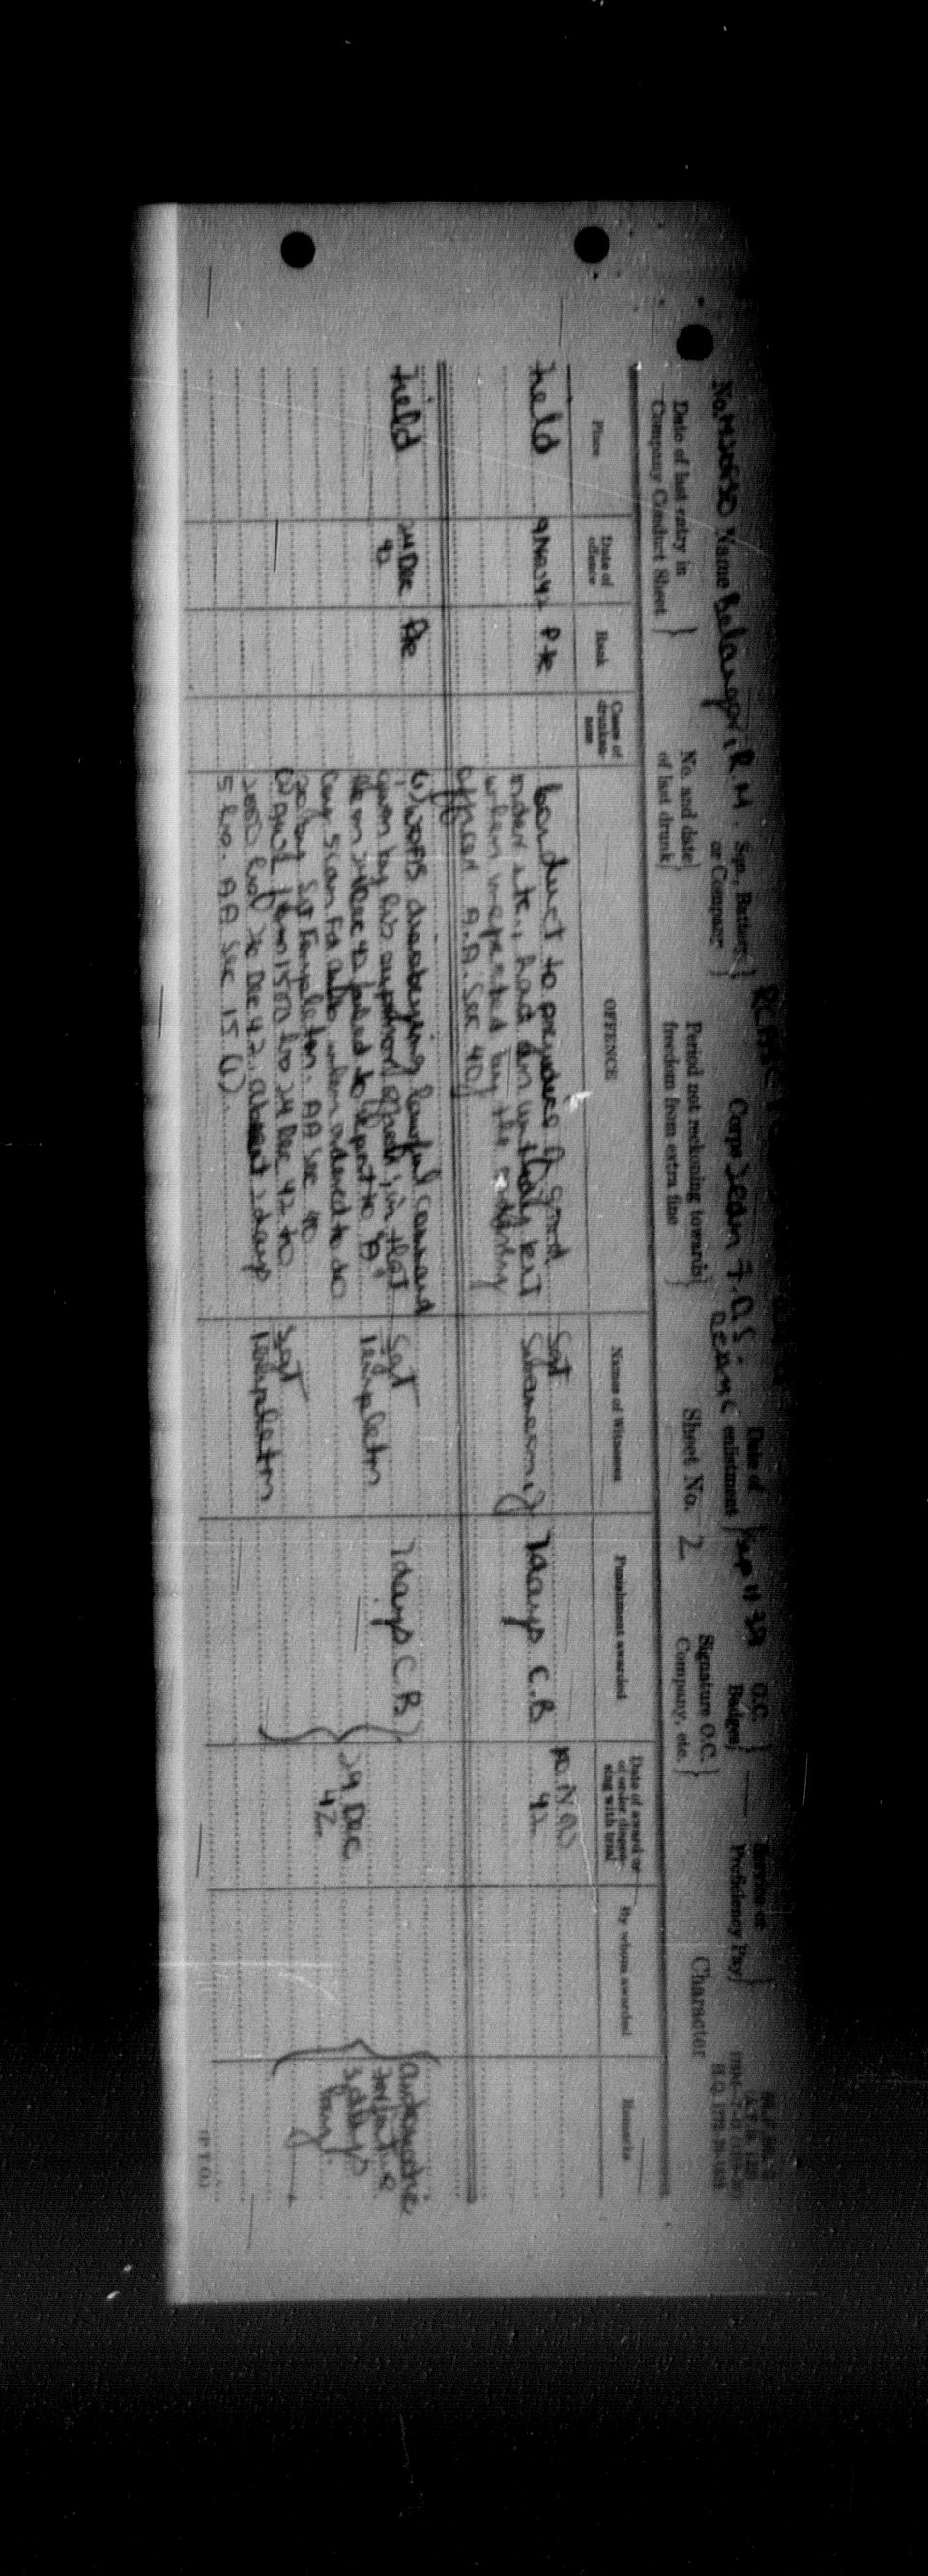 M.F.M. 6
H.Q. 1772-39-1453
No. Name Belanger, R.H. Sqn., Battery or Company } Corps Date of enlistment } Sep 11 39 G.C. Badges } — Service or Proficiency Pay }
Date of last entry in Company Conduct Sheet } No. and date of last drunk } Period not reckoning towards freedom from extra fine } Sheet No. 2 Signature O.C. Company, etc. } Character
Place Date of offence Rank Cases of drunkenness OFFENCE Names of Witnesses Punishment awarded Date of award or of order dispensing with trial By whom awarded Remarks
Field 9 Nov 42 Pte Conduct to prejudice of good Sgt 7 days C.B 10 Nov 42
order etc., had an untidy kit
when inspected by the orderly
officer A.A. Sec 40
Field 24 Dec 42 Pte (1) WOAS disobeying lawful command Sgt Templeton 7 days C.B 29 Dec 42 automatic forfeiture 3 days pay.
given by his superior officer, in that
he on 24 Dec 42 failed to report to "A"
Coy 5 Cdn Fd Amb, when ordered to do
so by Sgt Templeton. AA Sec 40
(2) AWL from 1500 hrs 24 Dec 42 to Sgt Templeton
Dec 42. absent 2 days
5 hrs. AA Sec 15 (1).
(P.T.O.)